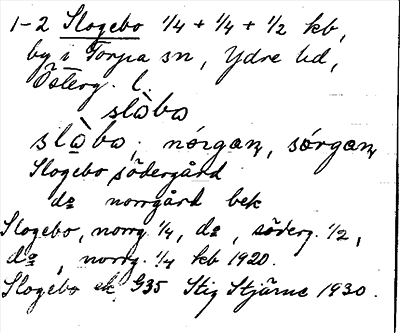 1-2 Slogebo 1/4 + 1/4 + 1/2 kb,
by i Torpa sn, Ydre hd,
Österg. l.
slòbo
slòbo, nórgaɳ, sórgaɳ
Slogebo södergård
d:o norrgård bek
Slogebo, norrg. 1/4, d:o, söderg. 1/2,
d:o, norrg. 1/4 kb 1920.
Slogebo ek G35 Stig Stjärne 1930.